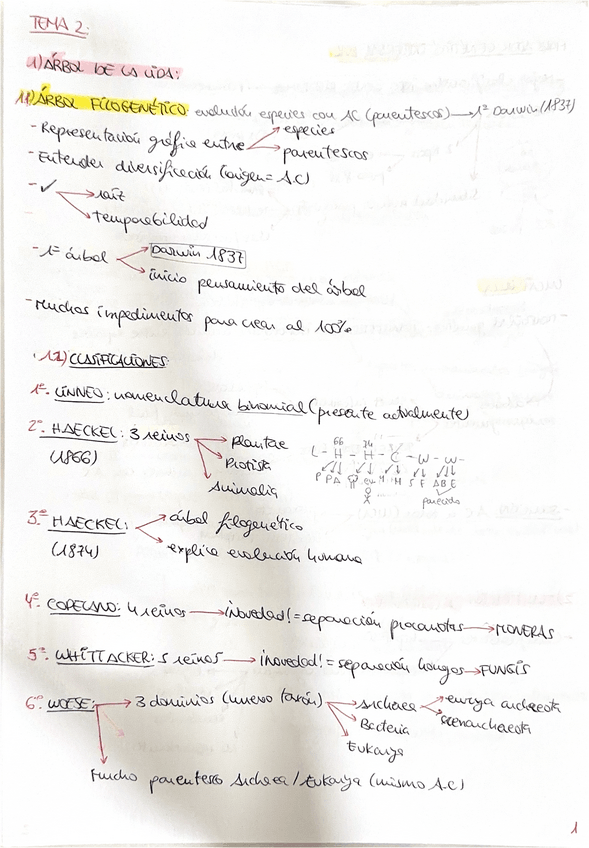 TEMA 2:
1) ÁRBOL DE LA VIDA:
1.1) ÁRBOL FILOGENÉTICO: evolución especies con AC (parentescos) → 1º Darwin (1837)
- Representación gráfica entre → especies
→ parentescos
- Entender diversificación (origen = A.C)
- ✓ → raíz
→ temporabilidad
- 1º árbol → Darwin 1837
→ inicio pensamiento del árbol
- Muchos impedimentos para crear al 100%
1.2) CLASIFICACIONES:
1º. LINNEO: nomenclatura binomial (presente actualmente)
2º. HAECKEL: 3 reinos → Plantae
(1866) → Protista
→ Animalia
66 74
L - H - H - C - W - W -
P PA S F A B E
parecido
3º. HAECKEL: → árbol filogenético
(1874) → explica evolución humana
4º. COPELAND: 4 reinos → ¡novedad! = separación procariotas → MONERAS
5º. WHITTACKER: 5 reinos → ¡novedad! = separación hongos → FUNGIS
6º. WOESE: → 3 dominios (nuevo taxón) → Archaea → euryarchaeota
→ crenarchaeota
→ Bacteria
→ Eukarya
Mucho parentesco Archaea / Eukarya (mismo A.C)
1